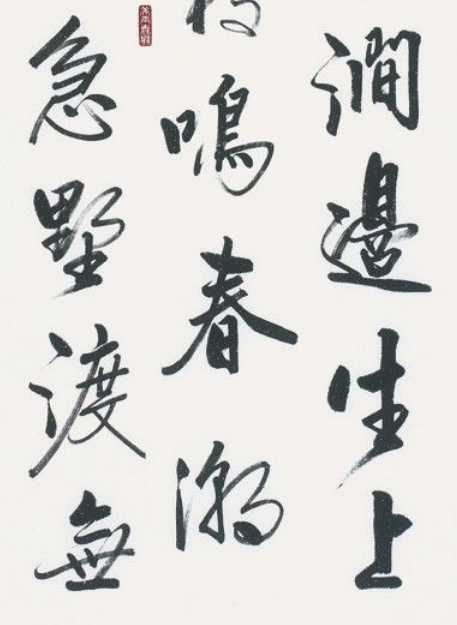 澗邊生上
鳴春潮
急墅渡無